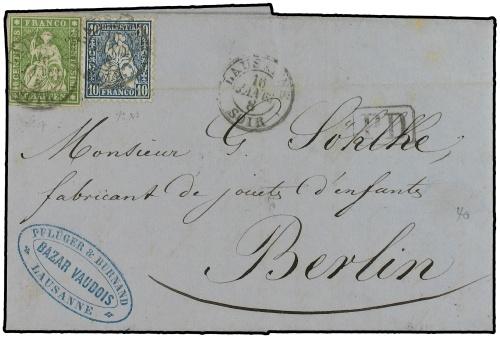 FRANCO
HELVETIA
10 FRANCO 10
LAUSANNE
18
JANV 63
SOIR
PD
Monsieur G. Söhlke,
fabricant de jouets d'enfants
Berlin
40
PFLÜGER & BURNAND
BAZAR VAUDOIS
LAUSANNE